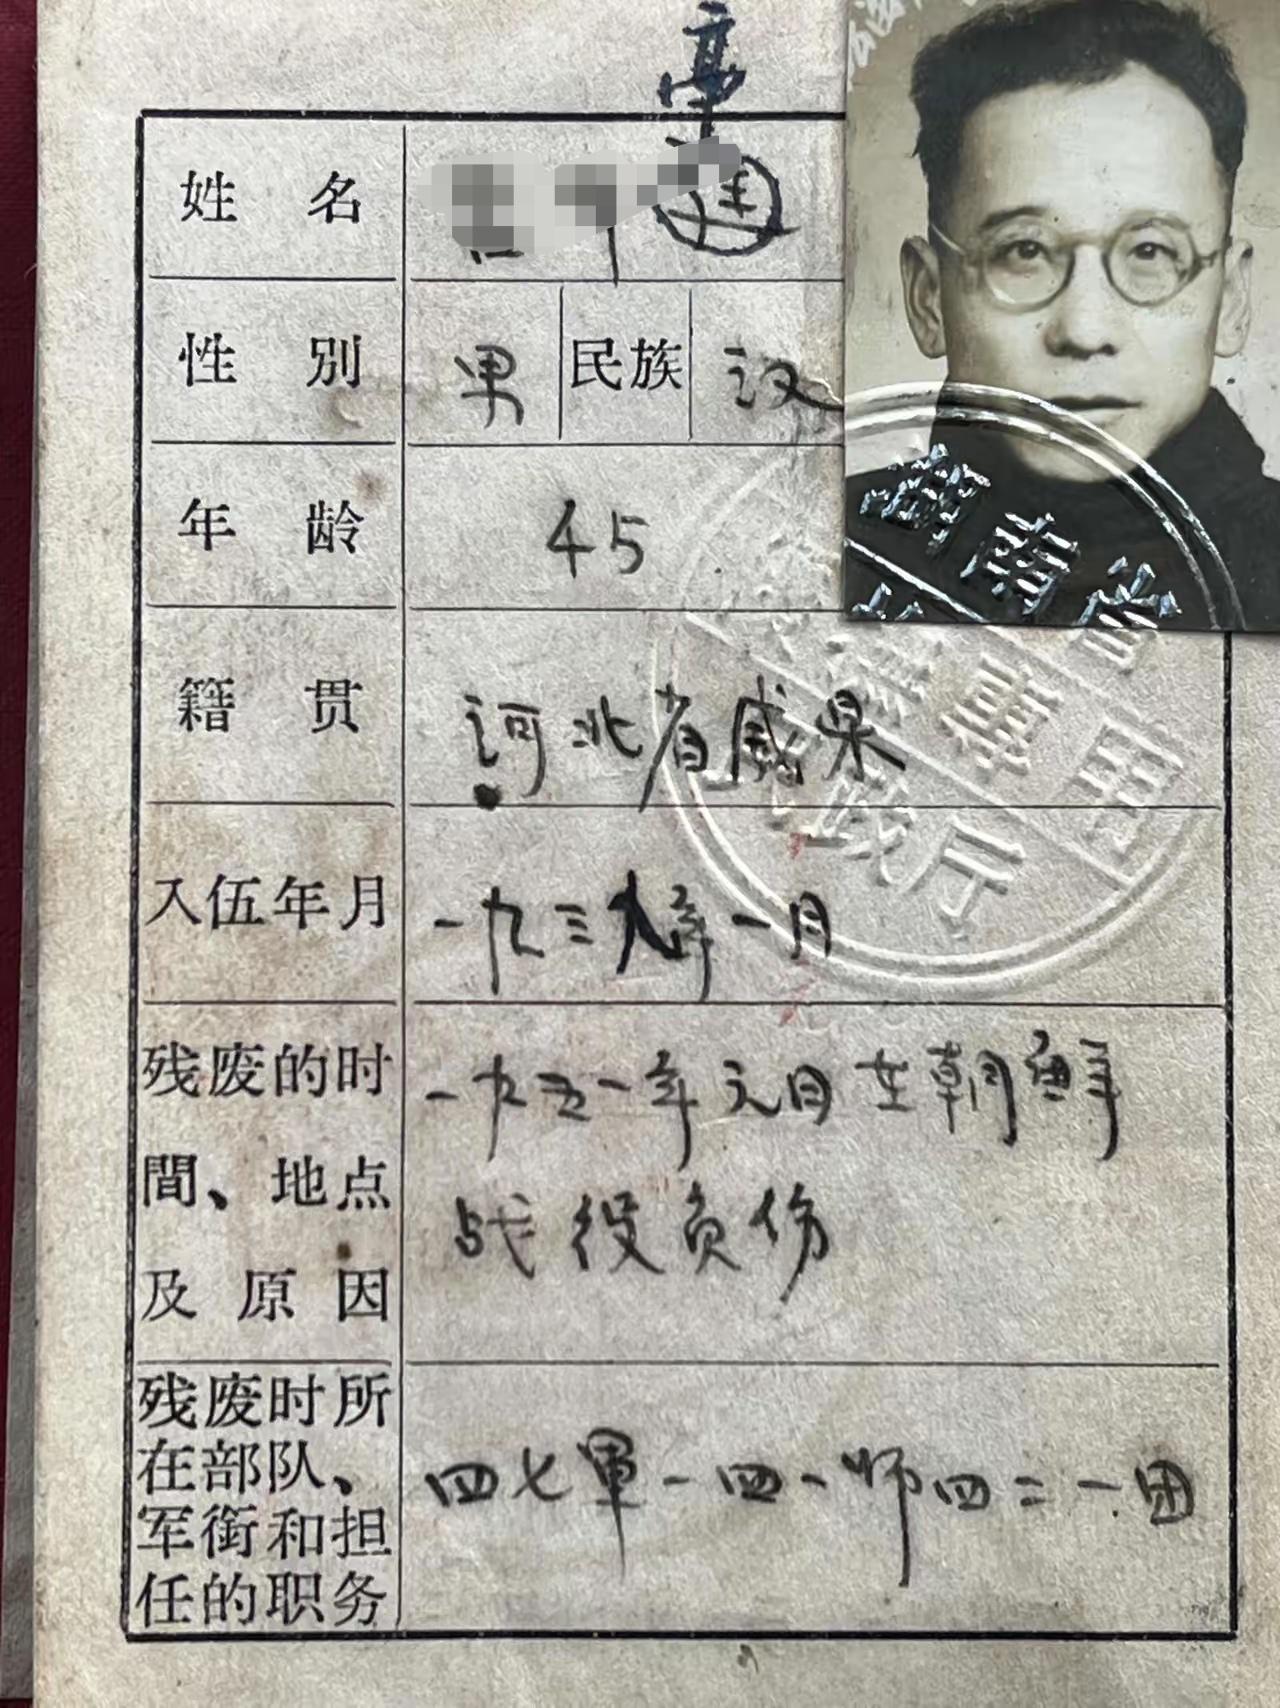 姓名
性别 男 民族 汉
年龄 45
籍贯 河北省威県
入伍年月 一九三九年一月
残废的时
間、地点
及原因
一九五一年元月在朝鲜
战役负伤
残废时所
在部队、
军銜和担
任的职务
四七軍一四一师四二一团
湖南省
民政厅
專用